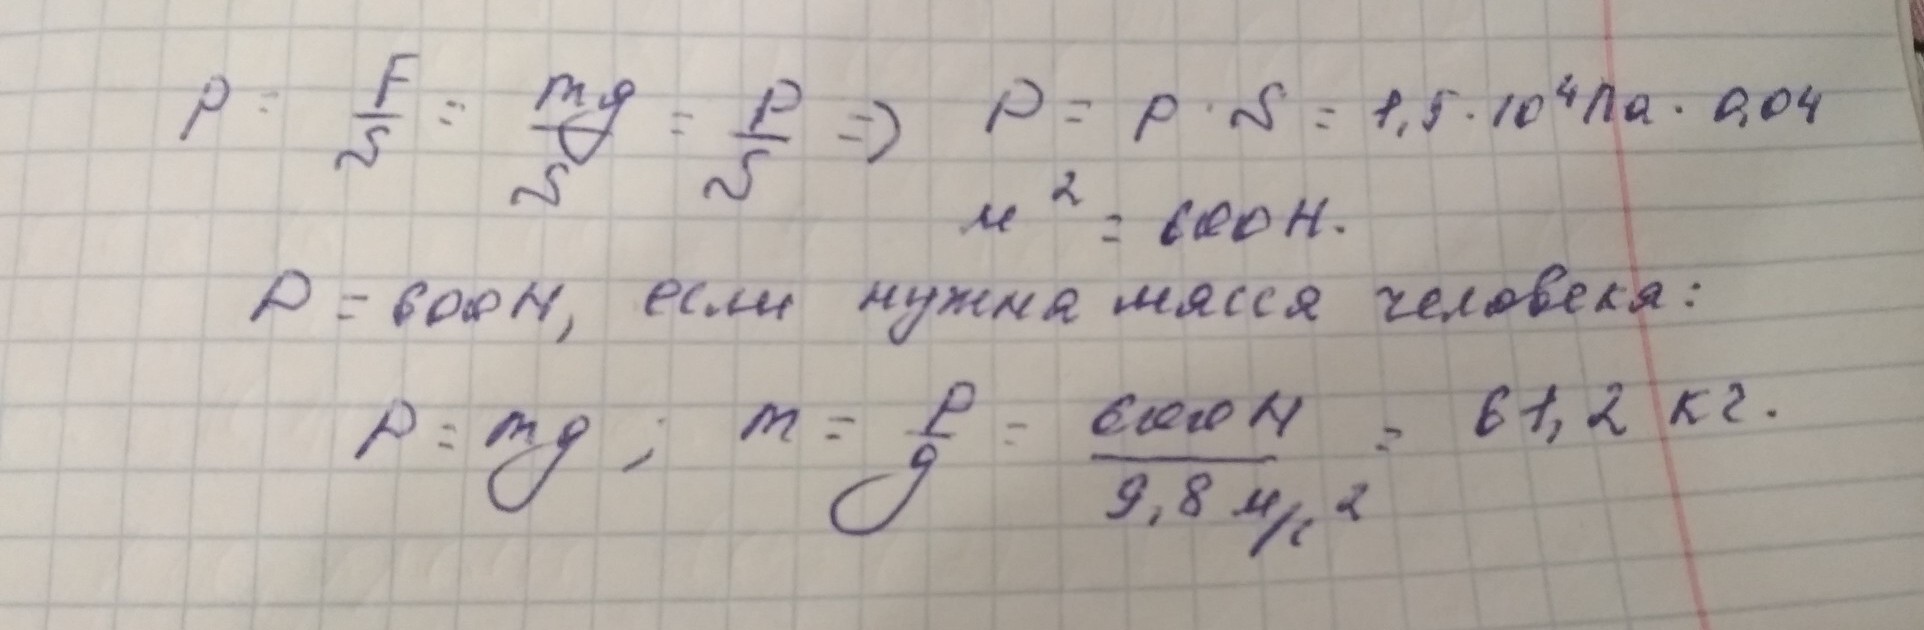 p = F/S = mg/S = P/S => P = p · S = 1,5 · 10⁴ Па · 0,04
м² = 600 Н.
P = 600 Н, если нужна масса человека:
P = mg ; m = P/g = 600 Н / 9,8 м/с² = 61,2 кг.